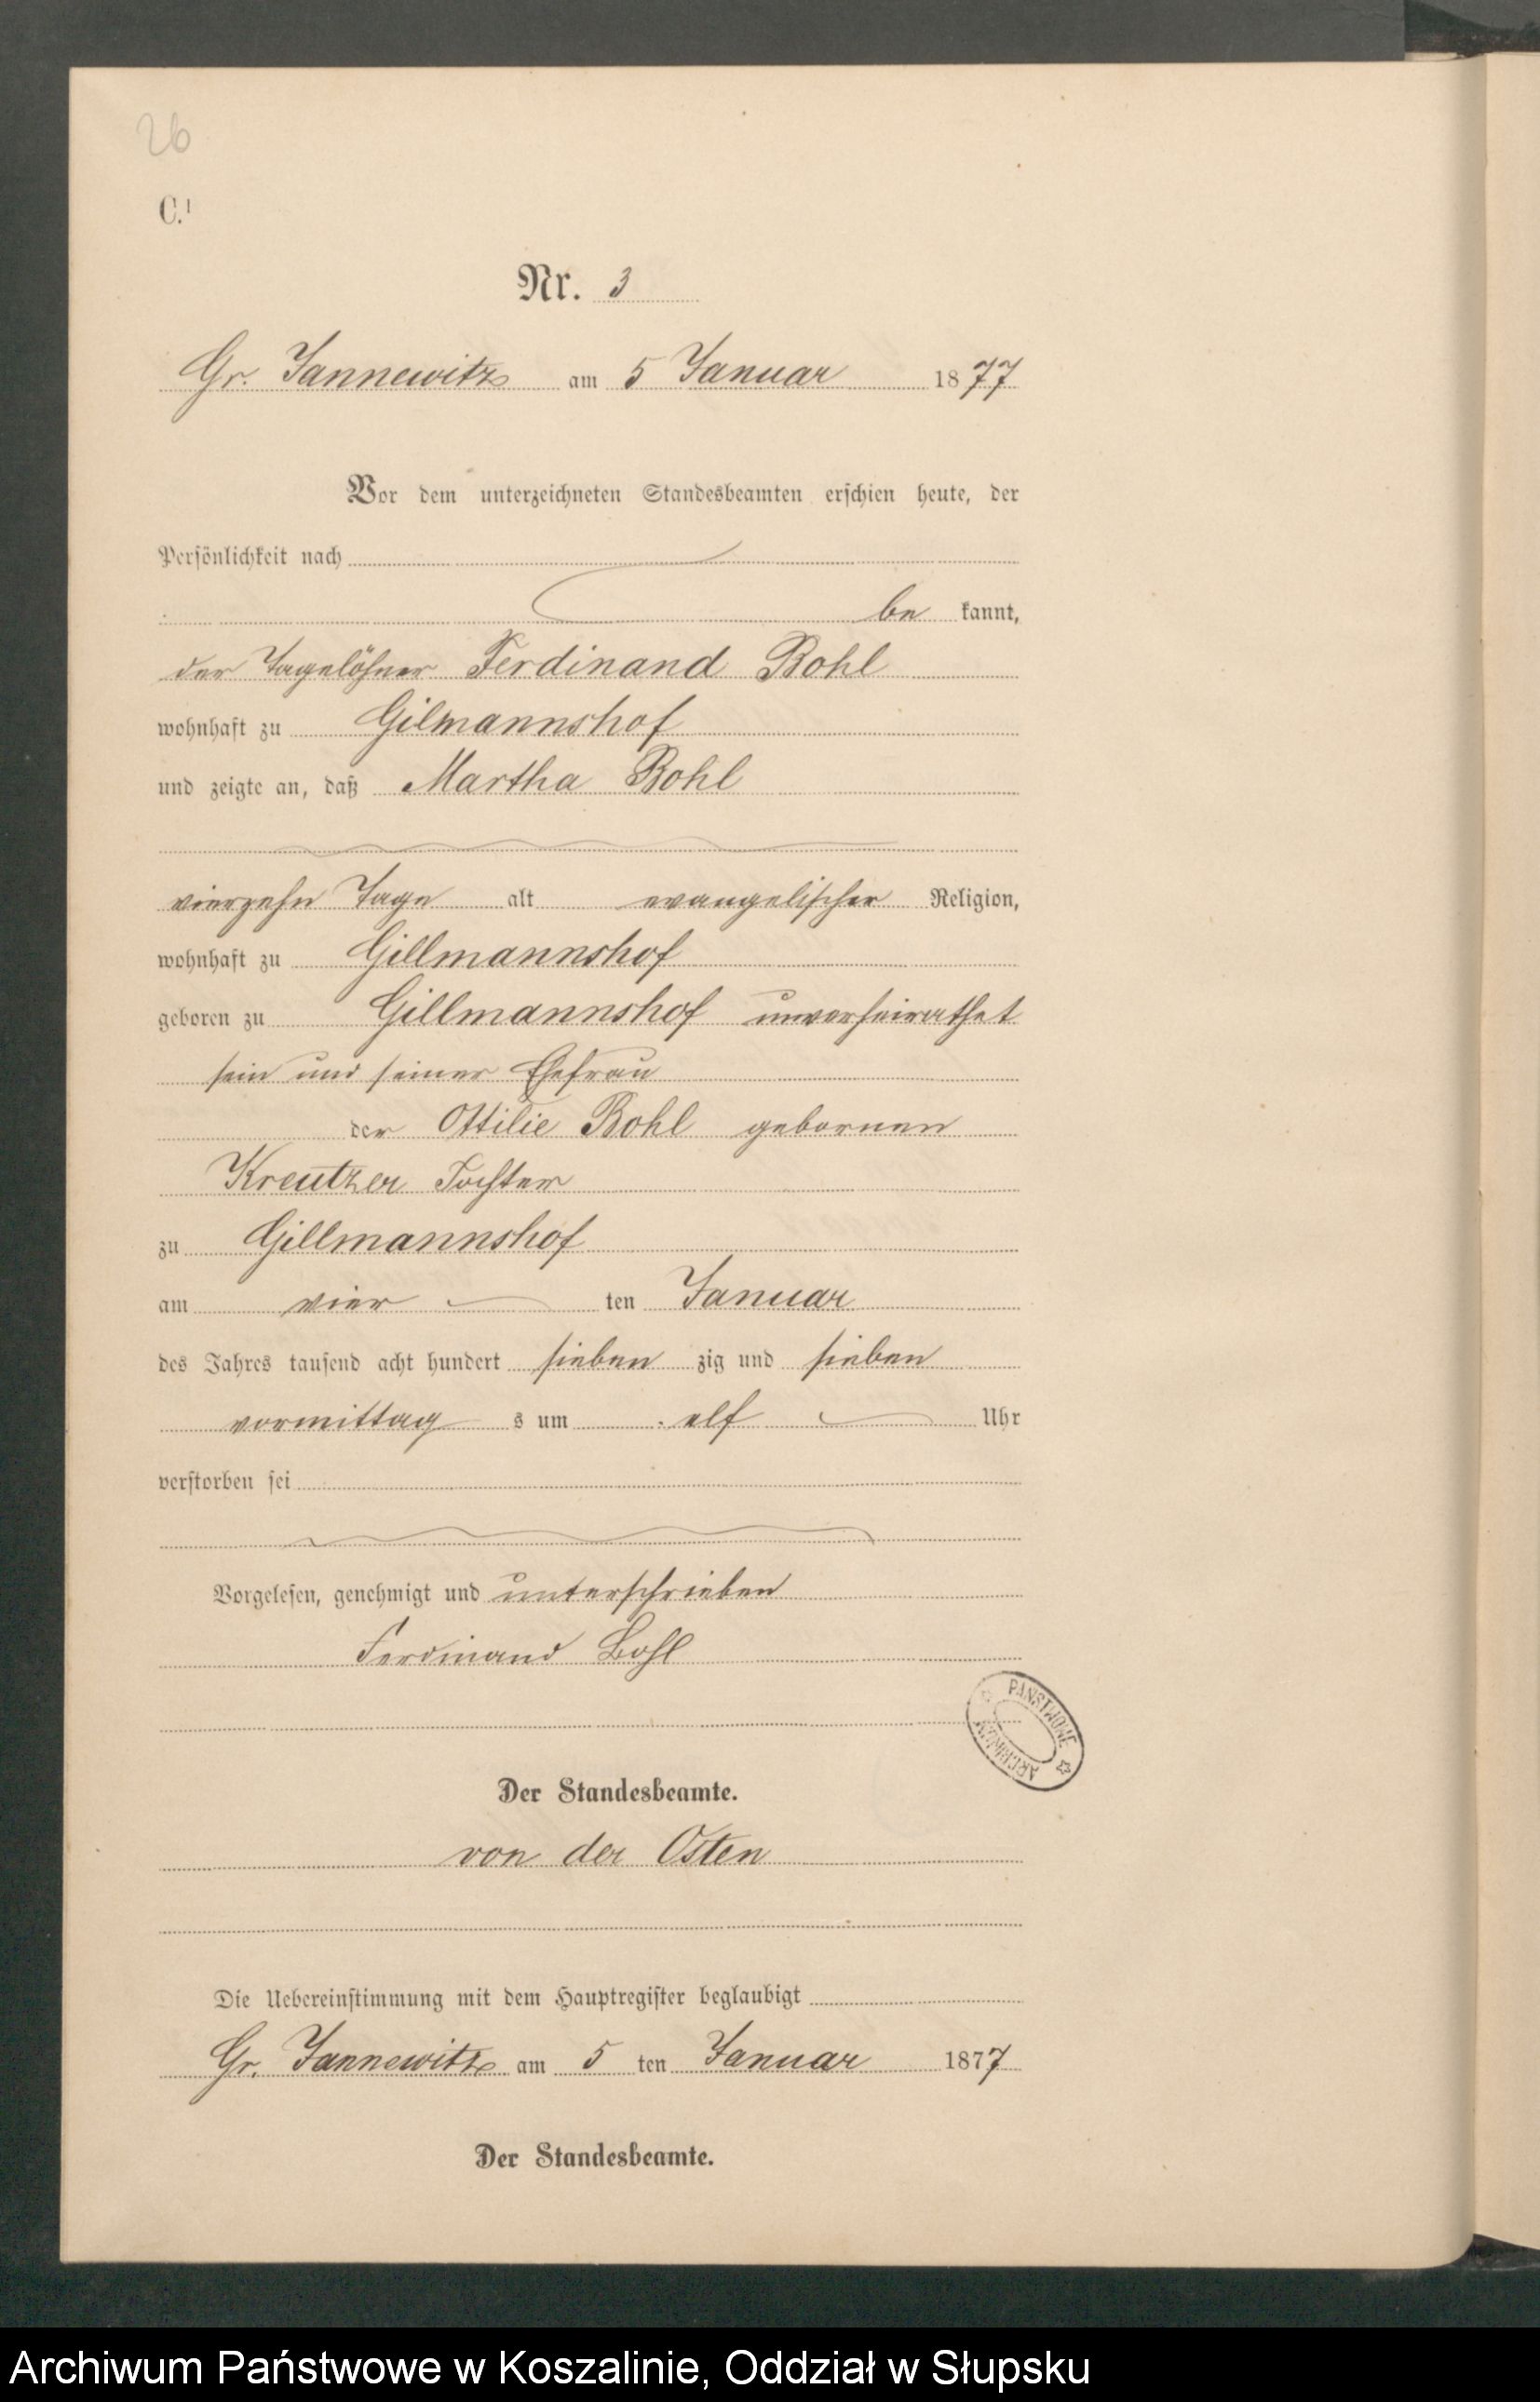 26
C.¹
Nr. 3
Gr. Jannewitz am 5 Januar 1877
Vor dem unterzeichneten Standesbeamten erschien heute, der
Persönlichkeit nach
be kannt,
der Tagelöhner Ferdinand Bohl
wohnhaft zu Gilmannshof
und zeigte an, daß Martha Bohl
vierzehn Tage alt evangelischer Religion,
wohnhaft zu Gillmannshof
geboren zu Gillmannshof unverheirathet
sein und seiner Ehefrau
der Ottilie Bohl gebornen
Kreutzer Tochter
zu Gillmannshof
am vier ten Januar
des Jahres tausend acht hundert sieben zig und sieben
vormittag s um elf Uhr
verstorben sei
Vorgelesen, genehmigt und unterschrieben
Ferdinand Bohl
PAŃSTWOWE ARCHIWUM
Der Standesbeamte.
von der Osten
Die Uebereinstimmung mit dem Hauptregister beglaubigt
Gr. Jannewitz am 5 ten Januar 1877
Der Standesbeamte.
Archiwum Państwowe w Koszalinie, Oddział w Słupsku